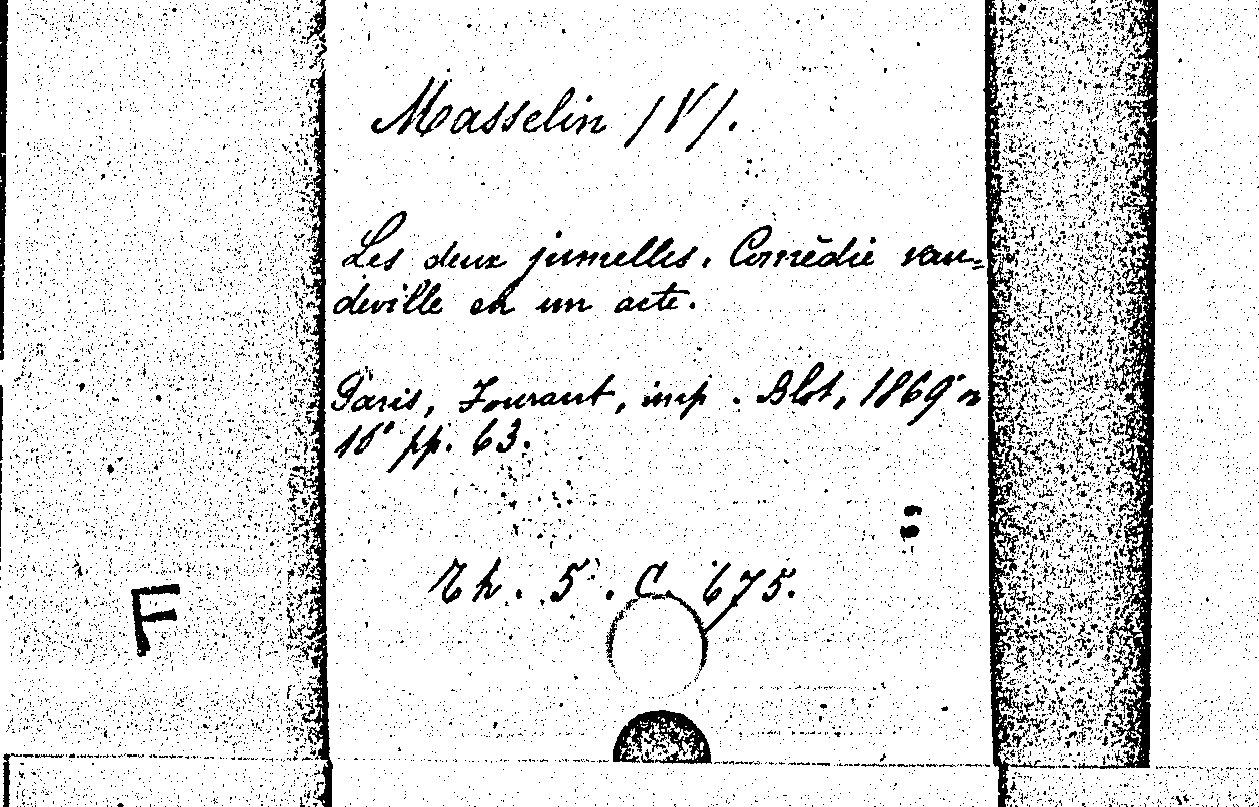 Masselin /V/.
Les deux jumelles. Comédie vau=
deville en un acte.
Paris, Fourant, imp. Blot, 1869 in
16° pp. 63.
Th. 5. C. 675.
F